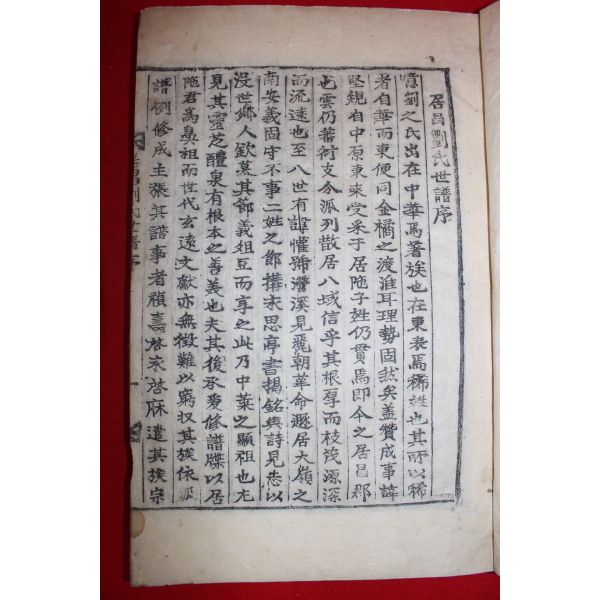 居昌劉氏世譜序
噫劉之氏出在中華爲著族也在東表爲稀姓也其所以稀
者自華而東便同金橘之渡淮耳理勢固然矣盖贊成事諱
堅規自中原東來受采于居陁子姓仍貫焉即今之居昌郡
也雲仍蕃衍支分派列散居八域信乎其根厚而枝茂源深
而流遠也至八世有諱懽號灆溪見麗朝革命遯居大嶺之
南安義固守不事二姓之節搆永思亭書揭銘與詩見志以
沒世鄉人欽慕其節義俎豆而享之此乃中葉之顯祖也尤
見其靈芝醴泉有根本之善美也夫其後承爰修譜牒以居
陁君爲鼻祖而世代玄遠文獻亦無徵難以窮收其族依
譜例修成主張其譜事者禎壽啓永啓麻遣其族宗
居昌劉氏世譜序
一